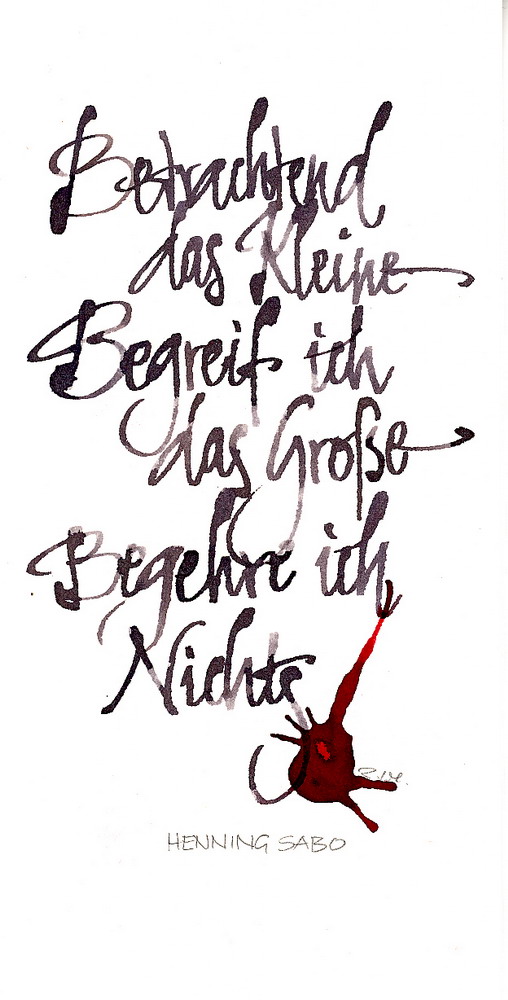 Betrachtend
das Kleine
Begreif ich
das Große
Begehre ich
Nichts
HENNING SABO